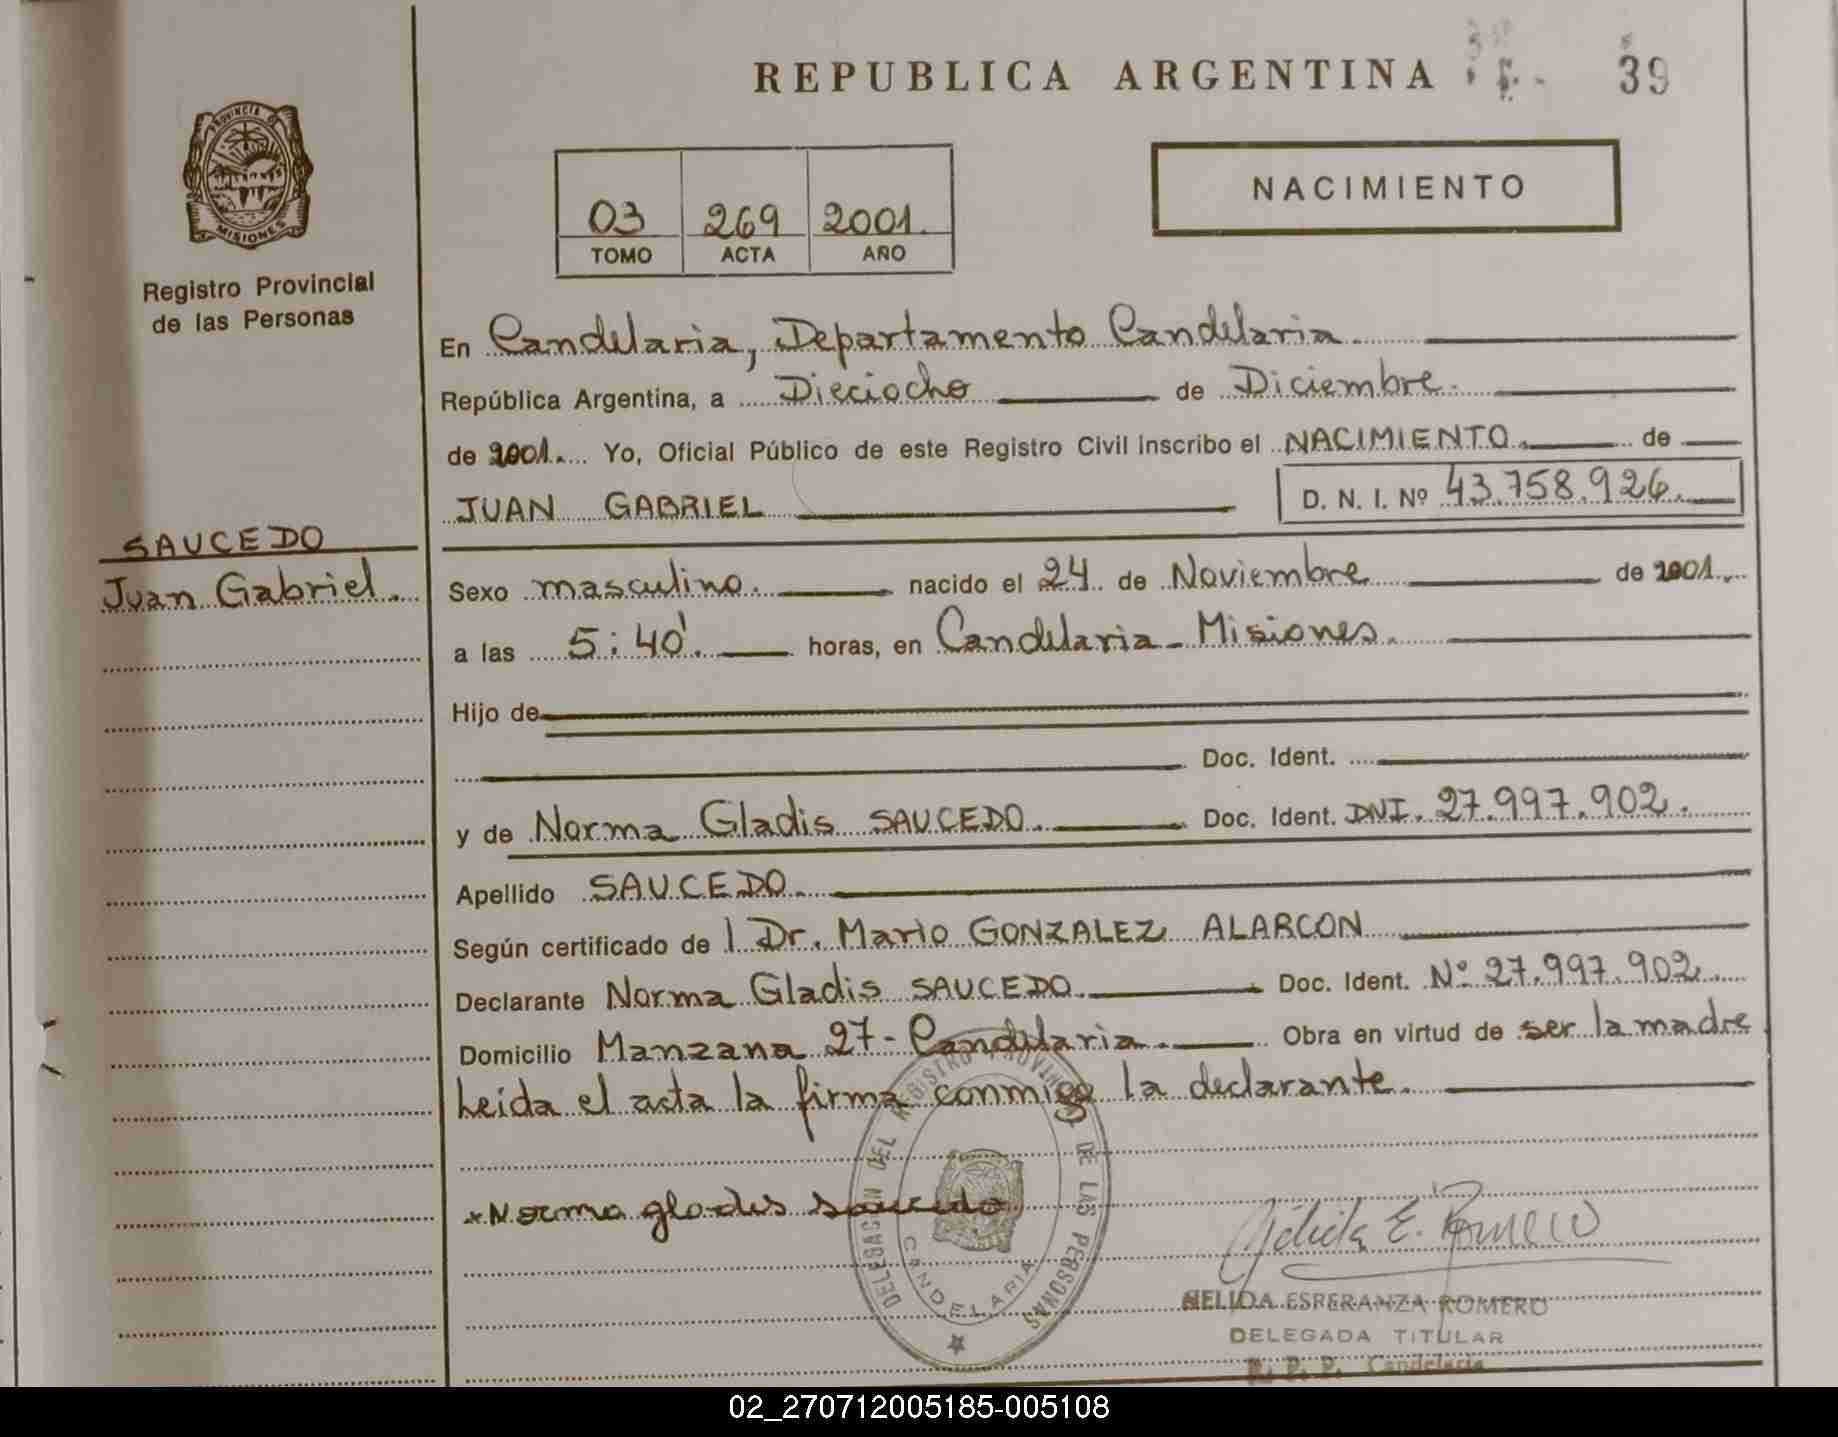 REPUBLICA ARGENTINA
39
PROVINCIA DE
MISIONES
Registro Provincial
de las Personas
03 269 2001.
TOMO ACTA AÑO
NACIMIENTO
En Candelaria, Departamento Candelaria.
República Argentina, a Dieciocho de Diciembre.
de 2001. Yo, Oficial Público de este Registro Civil inscribo el NACIMIENTO. de
JUAN GABRIEL D. N. I. Nº 43.758.926.
SAUCEDO
Juan Gabriel.
Sexo masculino. nacido el 24 de Noviembre de 2001.
a las 5:40'. horas, en Candelaria - Misiones.
Hijo de
Doc. Ident.
y de Norma Gladis SAUCEDO. Doc. Ident. DNI. 27.997.902.
Apellido SAUCEDO.
Según certificado de l Dr. Mario GONZALEZ ALARCON
Declarante Norma Gladis SAUCEDO. Doc. Ident. Nº 27.997.902.
Domicilio Manzana 27 - Candelaria. Obra en virtud de ser la madre
Leida el acta la firma conmigo la declarante.
DELEGACION DEL REGISTRO PROVINCIAL DE LAS PERSONAS
CANDELARIA
Norma glades saucedo
Nélida E. Romero
NELIDA ESPERANZA ROMERO
DELEGADA TITULAR
R. P. P. Candelaria
02_270712005185-005108